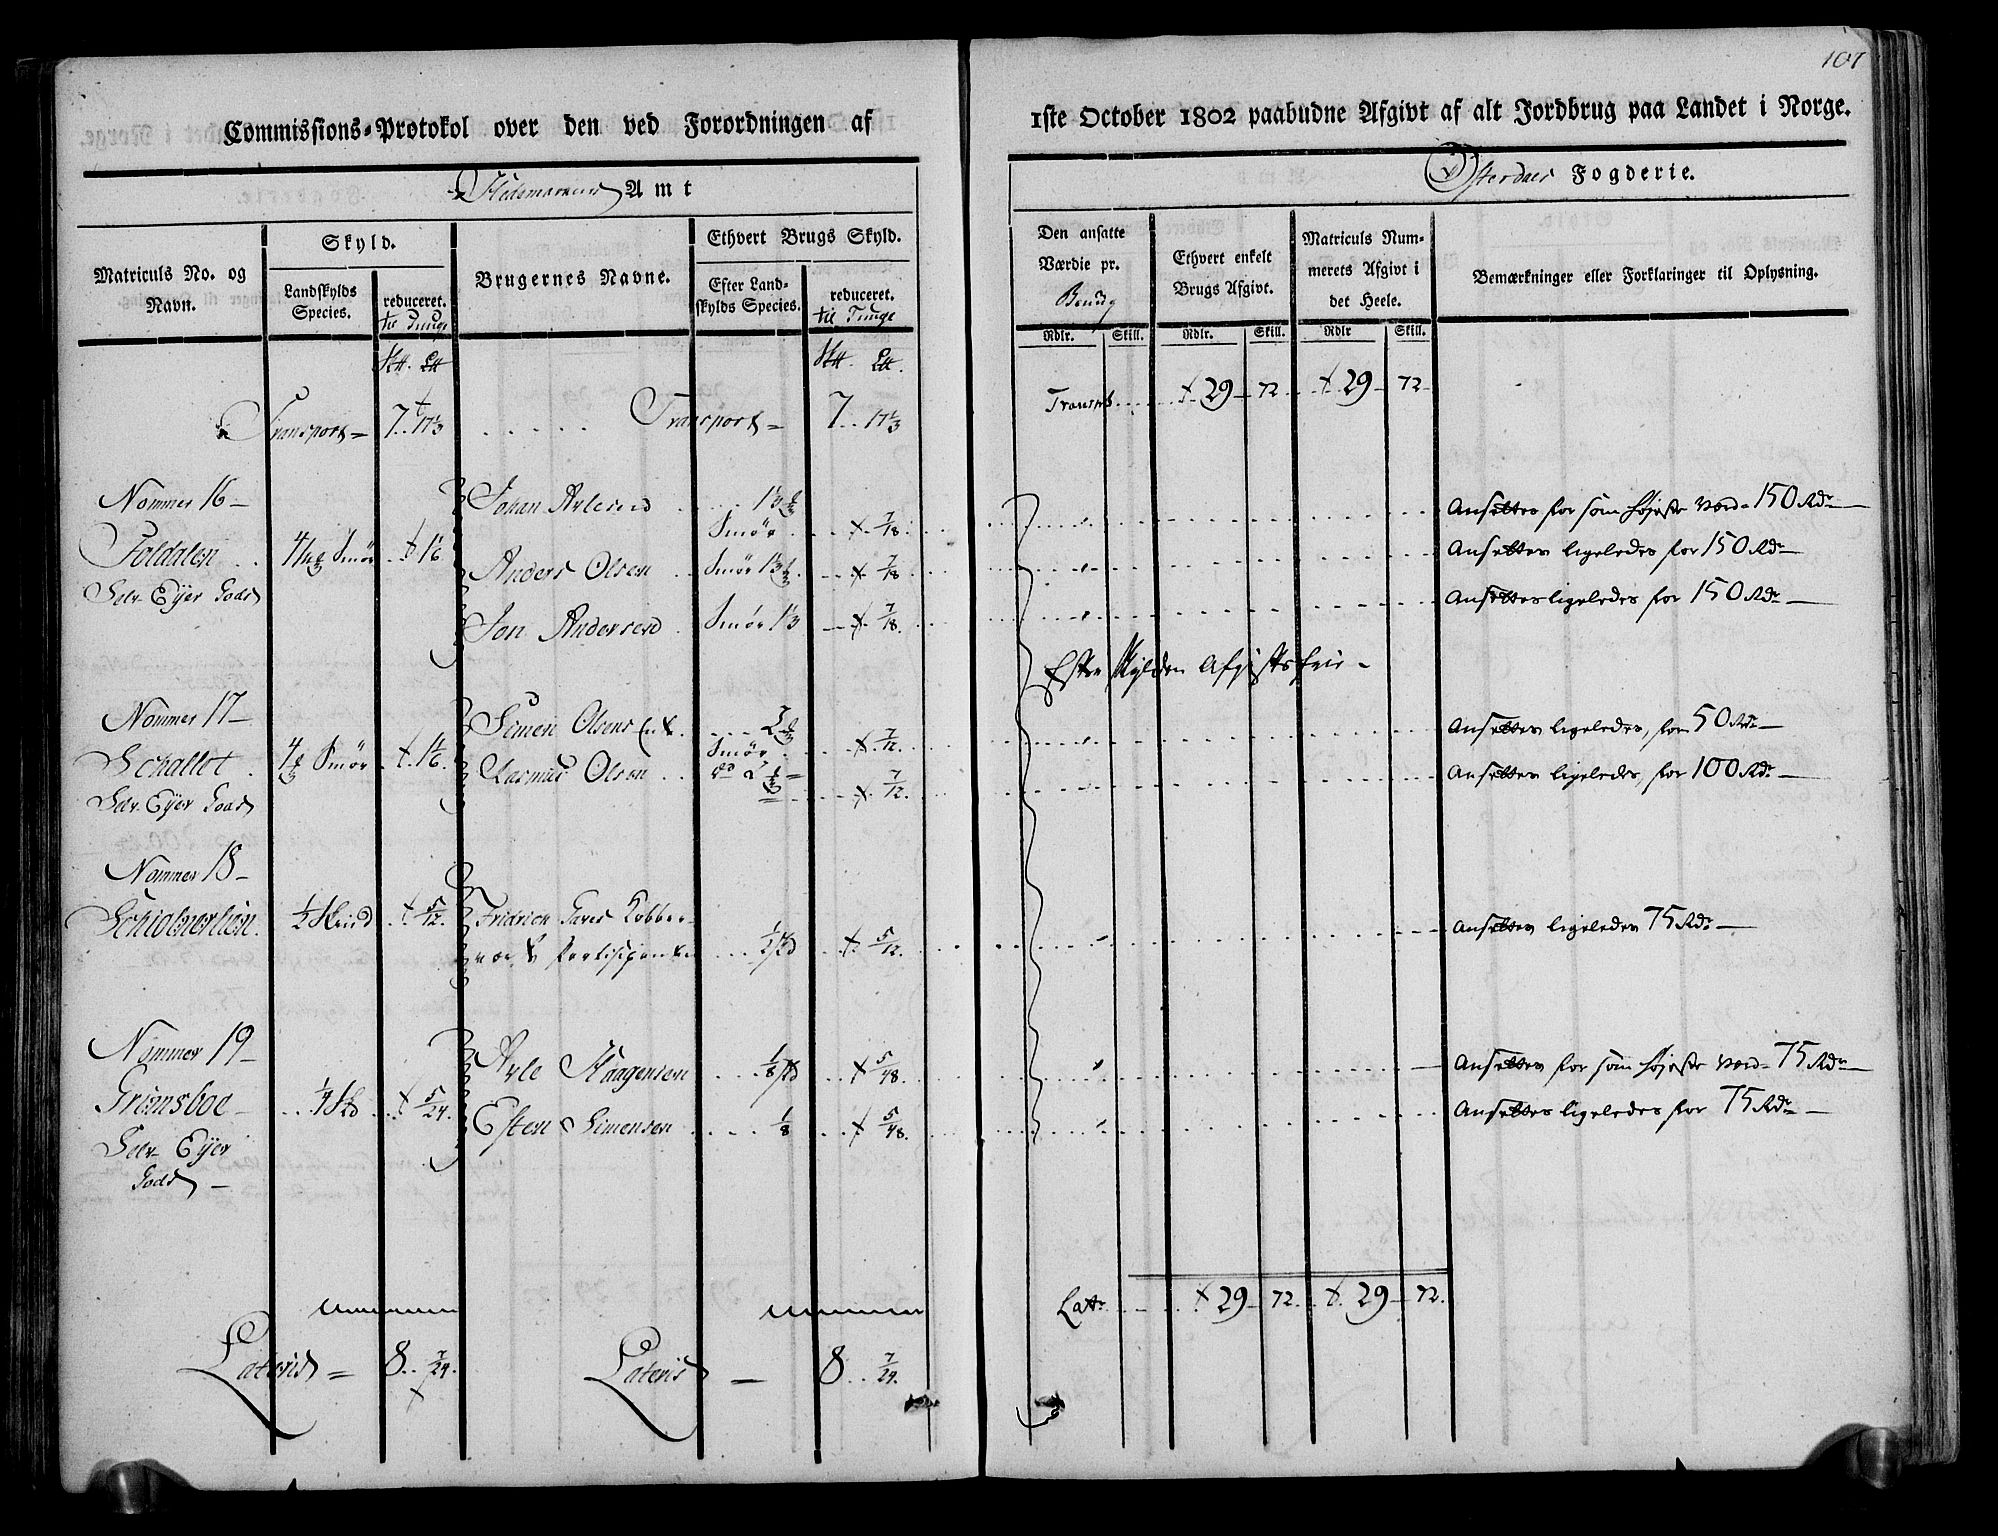 107
Commissions-Protokol over den ved Forordningen af
1ste October 1802 paabudne Afgivt af alt Jordbrug paa Landet i Norge.
Hedemarkens Amt
Østerdals Fogderie.
Matriculs No. og
Navn.
Skyld.
Landskylds
Species.
reduceret.
til Tunge
Brugernes Navne.
Ethvert Brugs Skyld.
Efter Land-
skylds Species.
reduceret.
til Tunge
Den ansatte
Værdie pr.
Ethvert enkelt
Brugs Afgivt.
Matriculs Num-
merets Afgivt i
det Heele.
Bemærkninger eller Forklaringer til Oplysning.
Rdlr. Skill. Rdlr. Skill. Rdlr Skill.
Transport = 7.. 17⅓ Transport = 7.. 17⅓
Transpt 29 72 29 72
Nommer 16
Foldalen
Selv Eyer Gods
Smør
Johan Arlesen
Smør 7/18 Ansettes for som høieste Værd 150 Rdr
Anders Olsen Smør 7/18 Ansettes ligeledes for 150 Rdr
Jon Andersen Smør 1⅓ 7/18 Ansettes ligeledes for 150 Rdr
Efter Skylden Afgiftsfrie
Nommer 17
Schallet
Selv Eyer Gods
Smør 1⅙
Simen Olsens Enk. Smør 7/12 Ansettes ligeledes, for 50 Rdr
Rasmus Olsen 7/12 Ansettes ligeledes, for 100 Rdr
Nommer 18
½ Skind 5/12
Fridrich Gaves Kobber-
værk Partisipanter ½ 5/12 Ansettes ligeledes 75 Rdr
Nommer 19
Grimsboe
Selv Eyer
Gods
¼ 5/24
Arle Haagensen ⅛ 5/48 Ansettes for som høieste Værd 75 Rdr
Esten Simensen ⅛ 5/48 Ansettes ligeledes for 75 Rdr
Latr 29 72 29 72
Lateris = 8.. 7/24 Lateris — 8.. 7/24